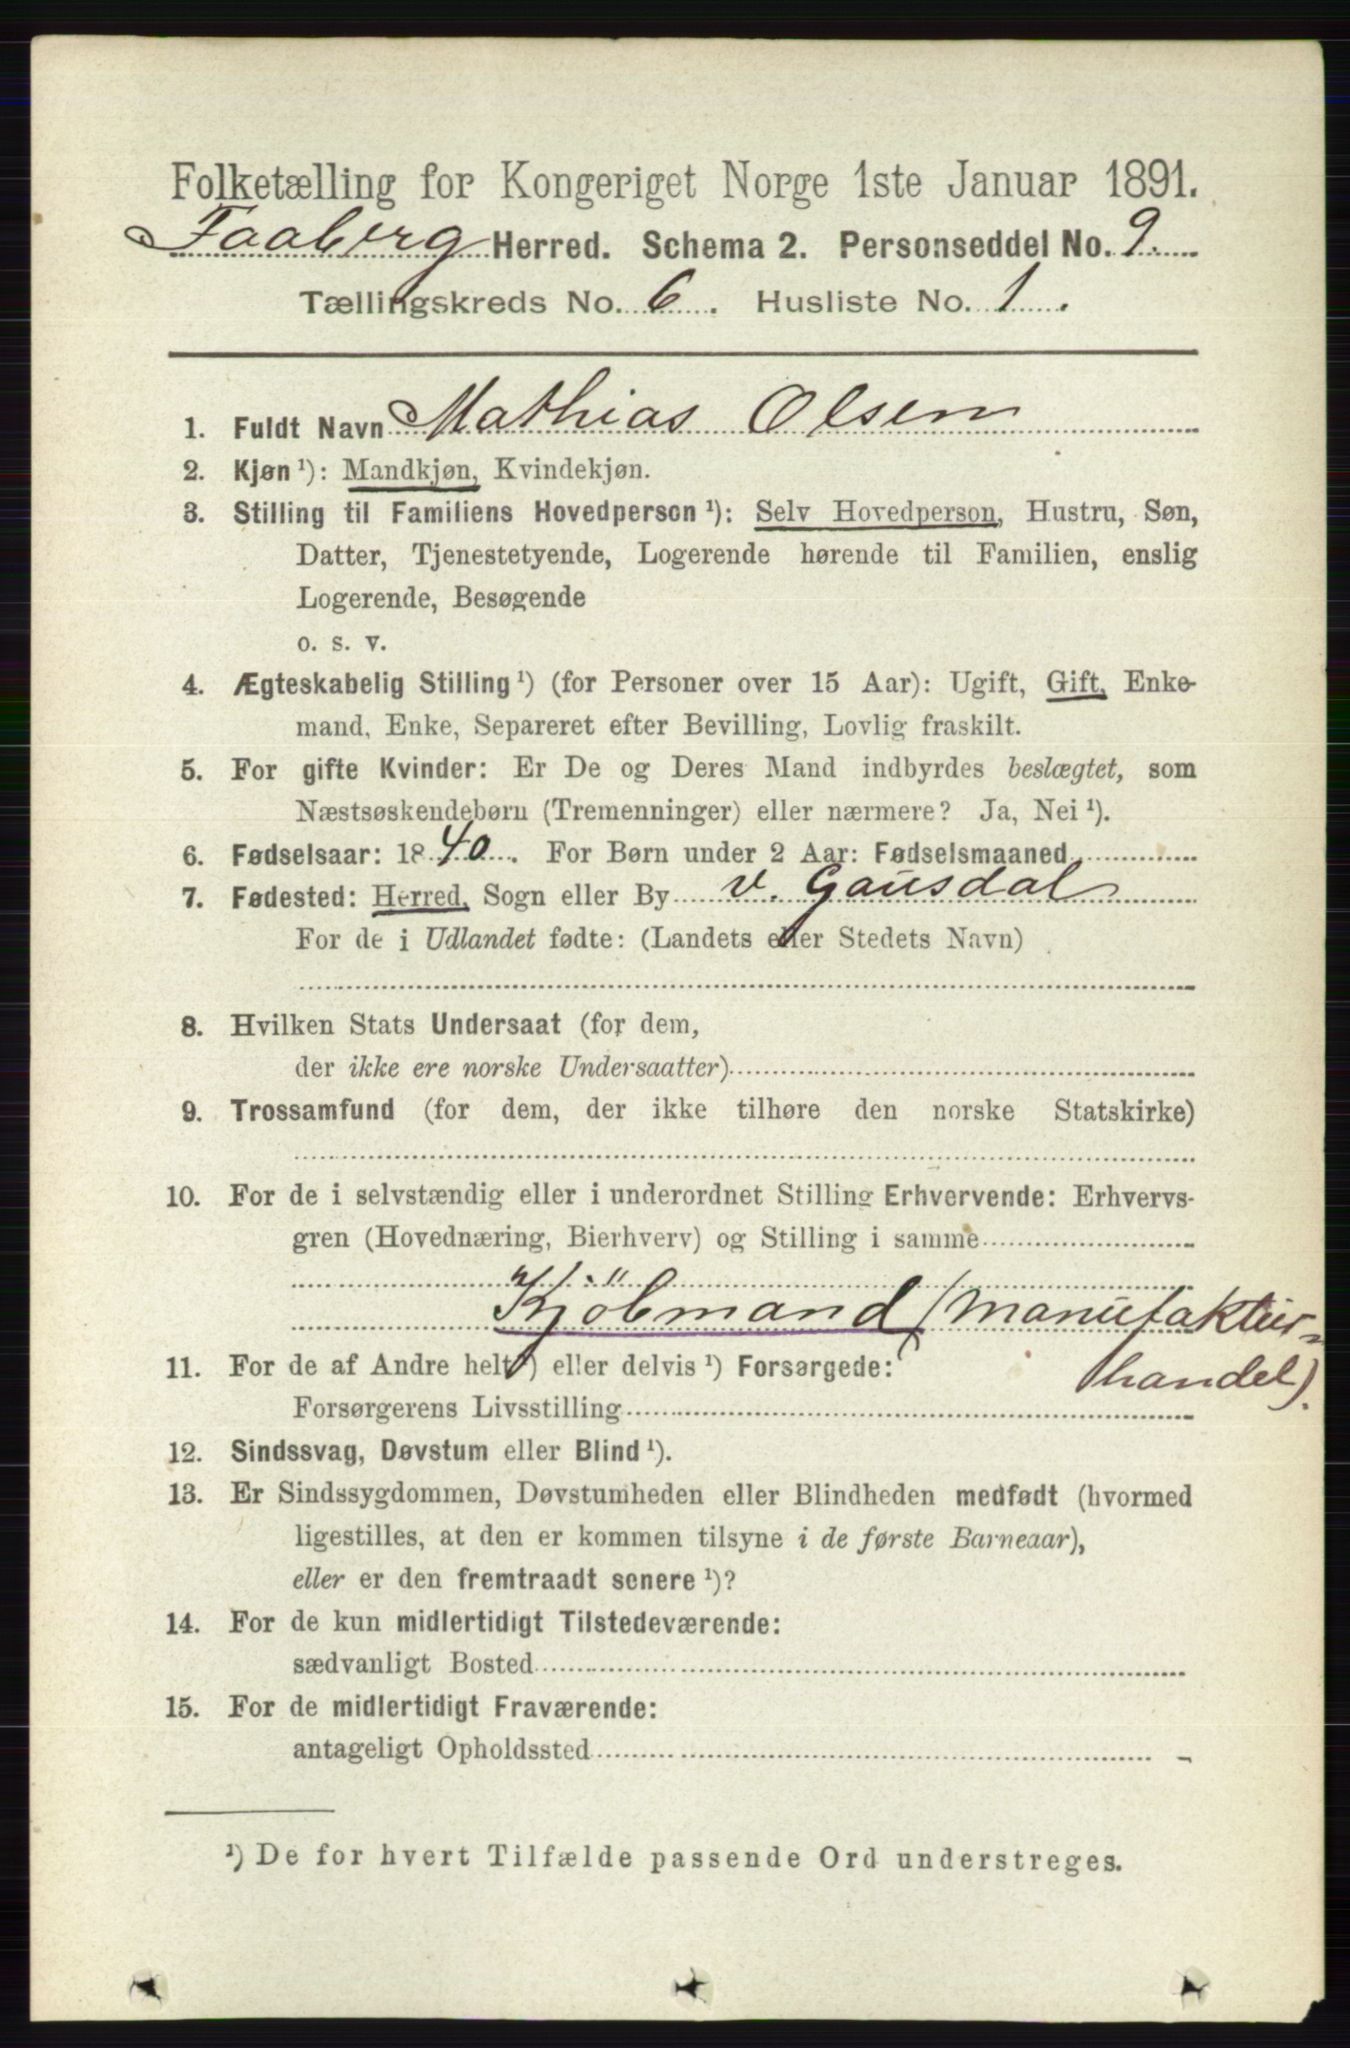 Folketælling for Kongeriget Norge 1ste Januar 1891.
Faaberg Herred. Schema 2. Personseddel No. 9.
Tællingskreds No. 6. Husliste No. 1.
1. Fuldt Navn Mathias Olsen
2. Kjøn ¹): Mandkjøn, Kvindekjøn.
3. Stilling til Familiens Hovedperson ¹): Selv Hovedperson, Hustru, Søn,
Datter, Tjenestetyende, Logerende hørende til Familien, enslig
Logerende, Besøgende
o. s. v.
4. Ægteskabelig Stilling ¹) (for Personer over 15 Aar): Ugift, Gift, Enke-
mand, Enke, Separeret efter Bevilling, Lovlig fraskilt.
5. For gifte Kvinder: Er De og Deres Mand indbyrdes beslægtet, som
Næstsøskendebørn (Tremenninger) eller nærmere? Ja, Nei ¹).
6. Fødselsaar: 1840. For Børn under 2 Aar: Fødselsmaaned
7. Fødested: Herred, Sogn eller By v. Gausdal
For de i Udlandet fødte: (Landets eller Stedets Navn)
8. Hvilken Stats Undersaat (for dem,
der ikke ere norske Undersaatter)
9. Trossamfund (for dem, der ikke tilhøre den norske Statskirke)
10. For de i selvstændig eller i underordnet Stilling Erhvervende: Erhvervs-
gren (Hovednæring, Bierhverv) og Stilling i samme
Kjöbmand (Manufaktur-
handel).
11. For de af Andre helt ¹) eller delvis ¹) Forsørgede:
Forsørgerens Livsstilling
12. Sindssvag, Døvstum eller Blind ¹).
13. Er Sindssygdommen, Døvstumheden eller Blindheden medfødt (hvormed
ligestilles, at den er kommen tilsyne i de første Barneaar),
eller er den fremtraadt senere ¹)?
14. For de kun midlertidigt Tilstedeværende:
sædvanligt Bosted
15. For de midlertidigt Fraværende:
antageligt Opholdssted
¹) De for hvert Tilfælde passende Ord understreges.